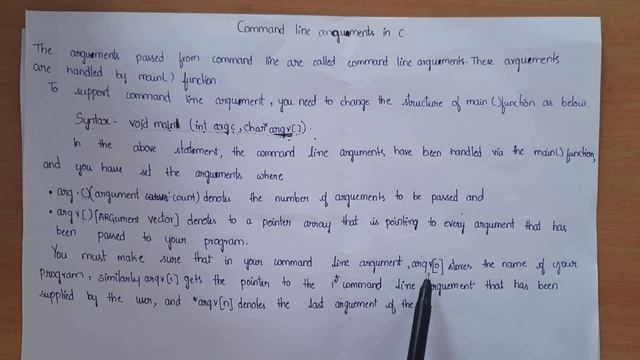 Command line arguements in C.
The arguements passed from command line are called command line arguements. These arguements
are handled by main() function.
To support command line arguement, you need to change the structure of main() function as below.
Syntax- void main (int argc, char* argv[]).
In the above statement, the command line arguments have been handled via the main() function,
and you have set the arguments where
• arg.()(argument count) denotes the number of arguements to be passed and
• argv()[ARGument vector] denotes to a pointer array that is pointing to every argument that has
been passed to your program.
You must make sure that in your command line argument, argv[0] stores the name of your
program, similarly argv[1] gets the pointer to the 1st command line arguement that has been
supplied by the user, and *argv[n] denotes the last arguement of the